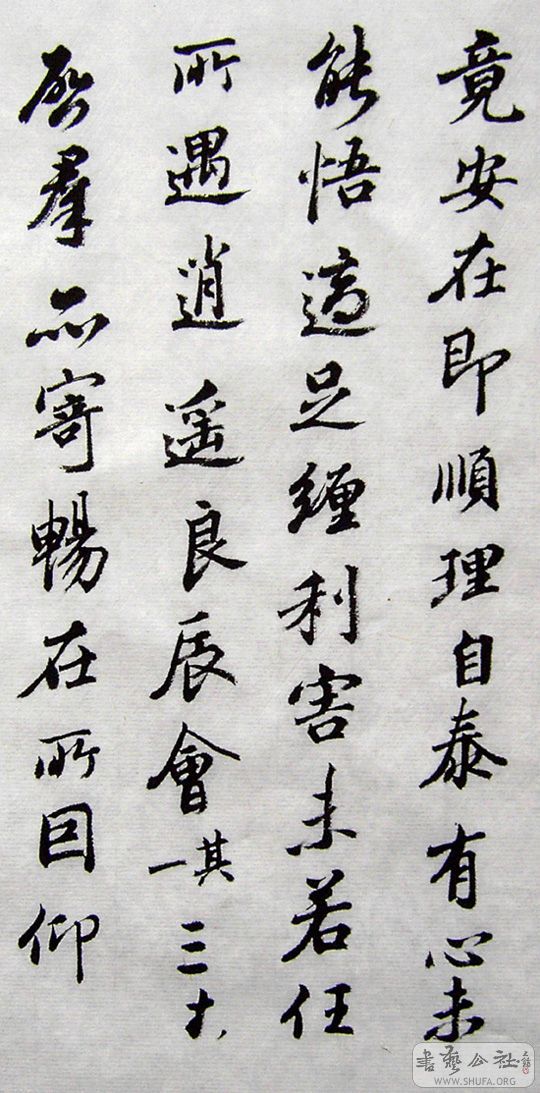 竟安在即順理自泰有心未
能悟適足纏利害未若任
所遇逍遥良辰會其一三
啓羣品寄暢在所因仰
書藝公社
WWW.SHUFA.ORG